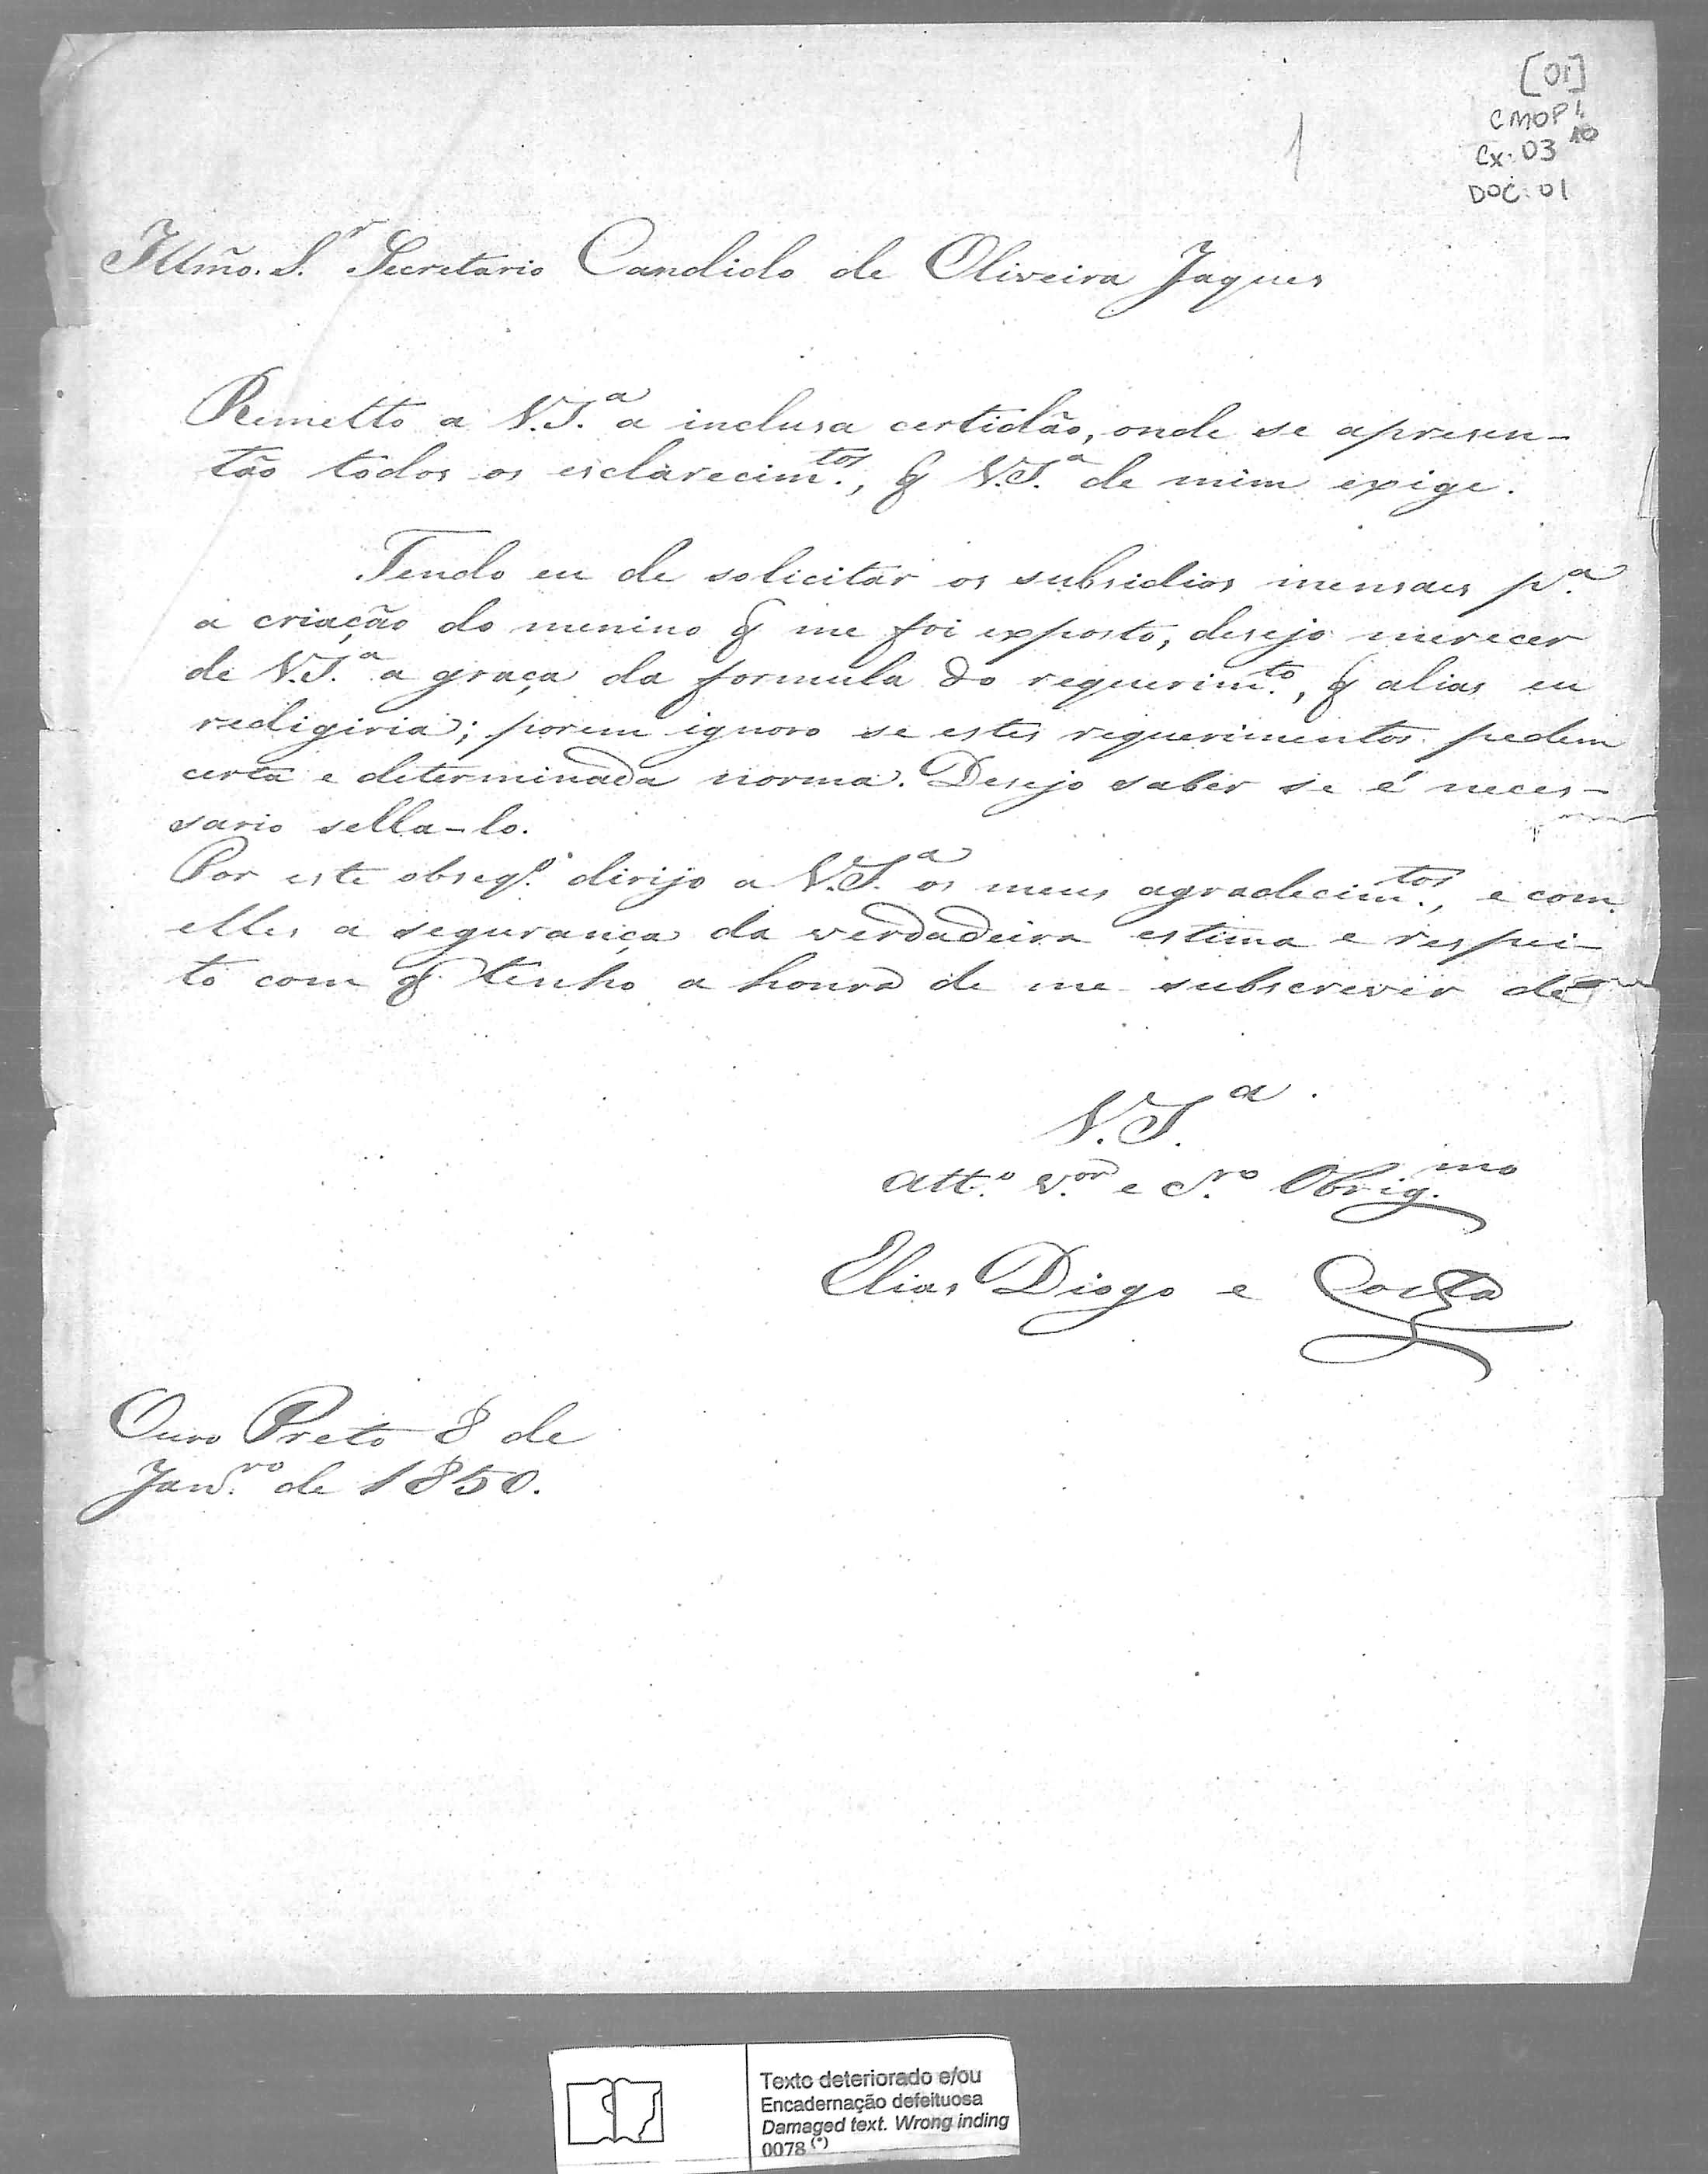 [01]
CMOP
Cx: 03
DOC: 01
1
Illmo. S.r Secretario Candido de Oliveira Jaques
Remetto a V.S.a a inclusa certidão, onde se apresen-
tão todos os esclarecim.tos, q V.S.a de mim exige.
Tendo eu de solicitar os subsidios mensaes p.a
a criação do menino q me foi exposto, desejo merecer
de V.S.a a graça da formula do requerim.to, q alias eu
redigiria; porem ignoro se estes requerimentos pedem
certa e determinada norma. Desejo saber se é neces-
sario sella-lo.
Por este obseq.o dirijo a V.S.a os meus agradecim.tos, e com
elles a segurança da verdadeira estima e respei-
to com q tenho a honra de me subscrever de
V.S.a
Att.o V.or e C.ro Obrig.mo
Elias Diogo e Costa
Ouro Preto 8 de
Jan.ro de 1850.
Texto deteriorado e/ou
Encadernação defeituosa
Damaged text. Wrong inding
0078 (*)